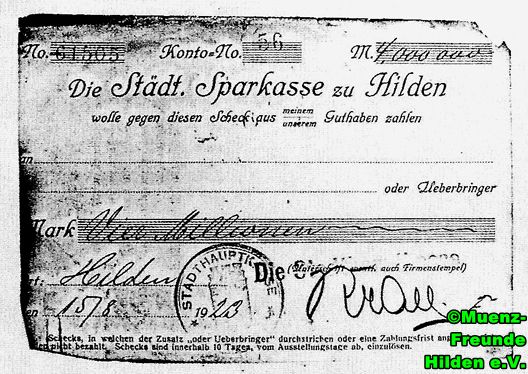 No. 61505 Konto-No. 56 M. 4,000 000
Die Städt. Sparkasse zu Hilden
wolle gegen diesen Scheck aus meinem unserem Guthaben zahlen
an
oder Ueberbringer
Mark Vier Millionen
Ort: Hilden
den 15/8 1923
STADTHAUPTK SSE
Die
(Unterschrift eventl. auch Firmenstempel)
Schecks, in welchen der Zusatz „oder Ueberbringer" durchstrichen oder eine Zahlungsfrist
nicht bezahlt. Schecks sind innerhalb 10 Tagen, vom Ausstellungstage ab, einzulösen.
©Muenz-
Freunde
Hilden e.V.